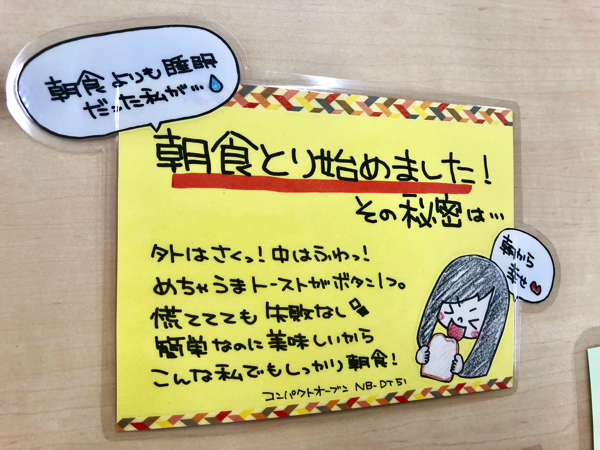 朝食よりも睡眠
だった私が…
朝食とり始めました!
その秘密は…
外はさくっ!中はふわっ!
めちゃうまトーストがボタン1つ。
慌ててても失敗なし
簡単なのに美味しいから
こんな私でもしっかり朝食!
コンパクトオーブン NB-DT51
朝から
幸せ